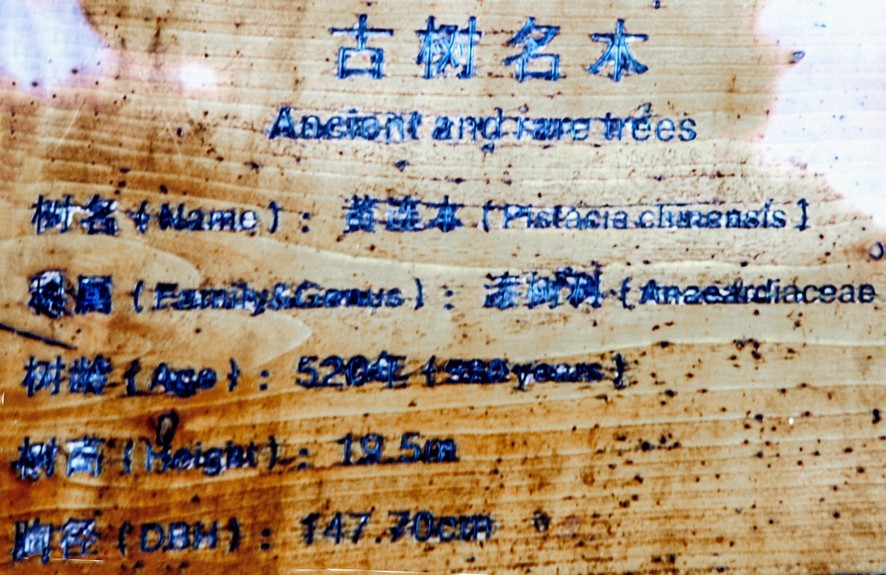 古树名木
Ancient and rare trees
树名(Name):黄连木(Pistacia chinensis)
属(Family&Genus):漆树科(Anacardiaceae
树龄(Age):520年(520 years)
树高(Height):19.5m
胸径(DBH):147.70cm